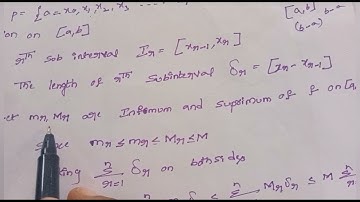 P = {a = x₀, x₁, x₂, x₃ ....
on on [a,b]
[a,b] b-a
(b-a)
rᵗʰ sub interval Iᵣ = [xᵣ₋₁, xᵣ]
The length of rᵗʰ subinterval δᵣ = [xᵣ - xᵣ₋₁]
et mᵣ, Mᵣ are Infimum and suprimum of f on [a,
since m ≤ mᵣ ≤ Mᵣ ≤ M
king Σⁿᵣ₌₁ δᵣ on both sides
≤ Σⁿ Mᵣ δᵣ ≤ M Σⁿ